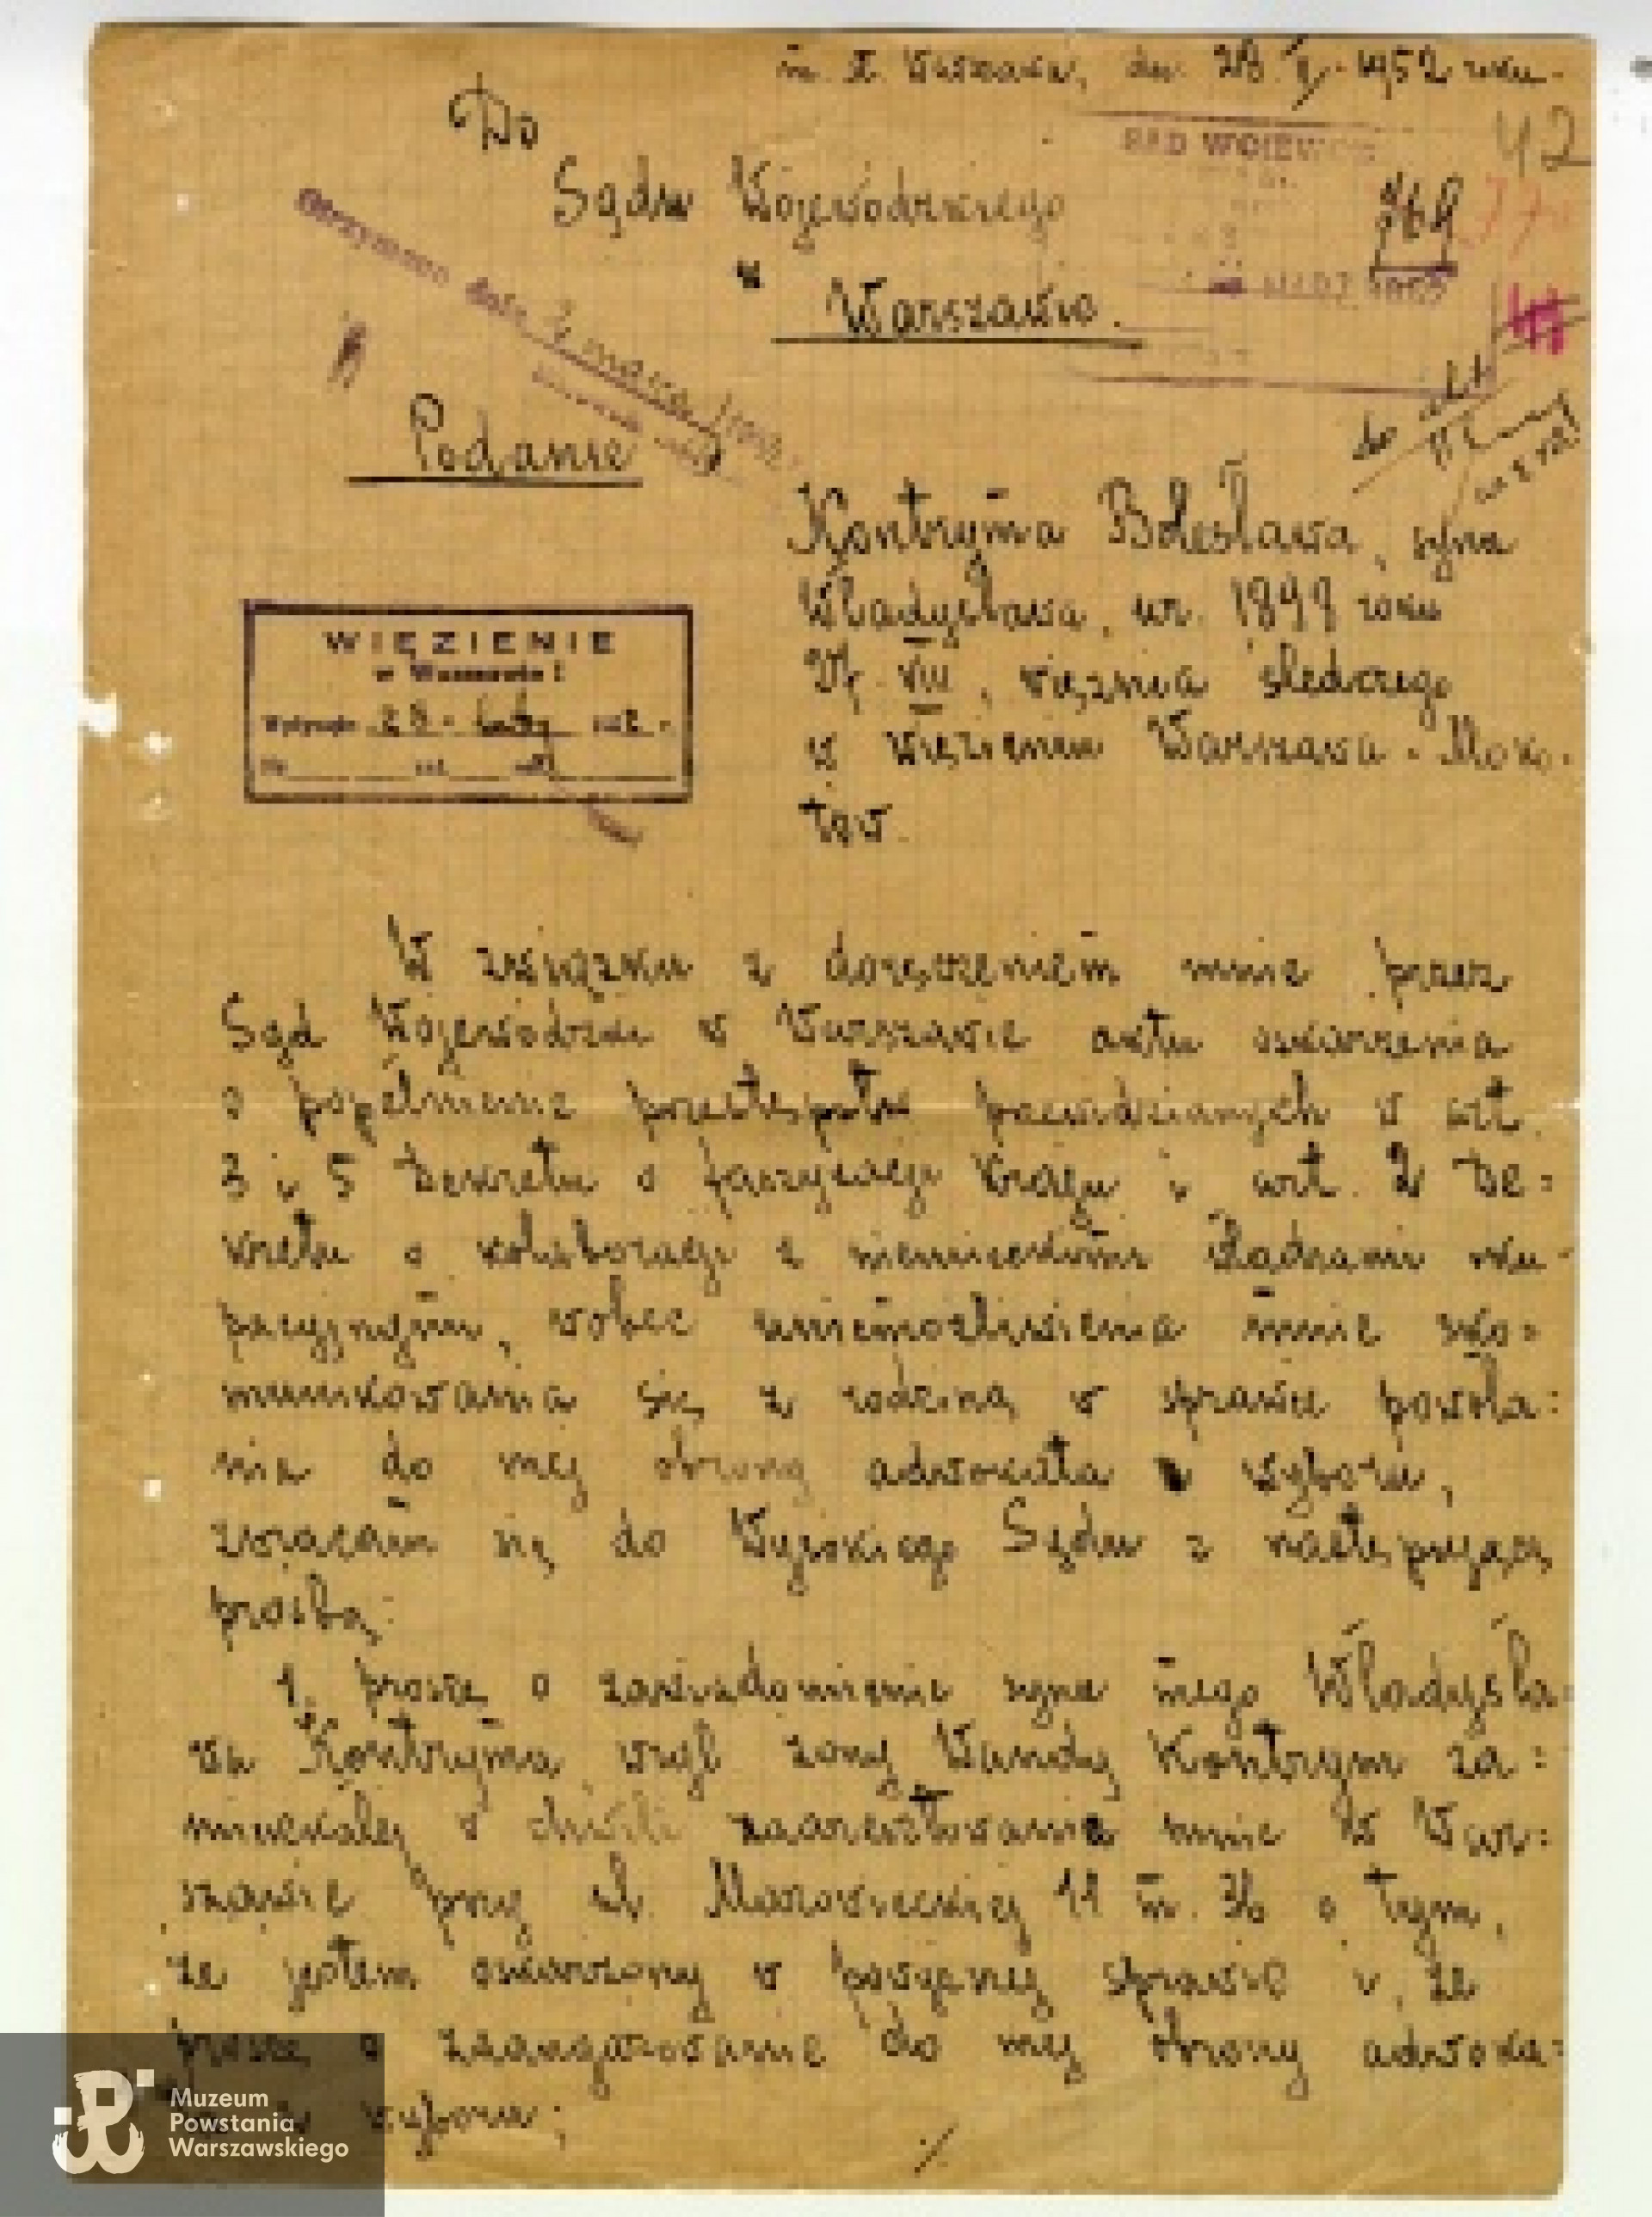 m. st. Warszawa, dn. 28. II. 1952 roku.
Do
Sądu Wojewódzkiego
w
Warszawie.
SĄD WOJEWÓDZ
42
Otrzymano dnia 4 marca 1952
Podanie
Kontryma Bolesława, syna
Władysława, ur. 1898 roku
27. VIII, więźnia śledczego
w więzieniu Warszawa-Moko-
tów.
WIĘZIENIE
w Warszawie I
Wpłynęło 28. luty 1952 r.
W związku z doręczeniem mnie przez
Sąd Wojewódzki w Warszawie aktu oskarżenia
o popełnienie przestępstw przewidzianych w art.
3 i 5 Dekretu o faszyzacji Kraju i art. 2 De=
kretu o kolaboracji z niemieckimi władzami oku-
pacyjnymi, wobec uniemożliwienia mnie sko=
munikowania się z rodziną w sprawie powoła=
nia do mej obrony adwokata z wyboru,
zwracam się do Wysokiego Sądu z następującą
prośbą:
1. proszę o zawiadomienie syna mego Władysła=
wa Kontryma, wzgl. żony Wandy Kontrym za=
mieszkałej w chwili zaaresztowania mnie w War=
szawie przy ul. Mazowieckiej 11 m. 36 o tym,
że jestem oskarżony w powyższej sprawie i, że
proszę o zaangażowanie do mej obrony adwoka=
ta z wyboru;
./.
Muzeum
Powstania
Warszawskiego